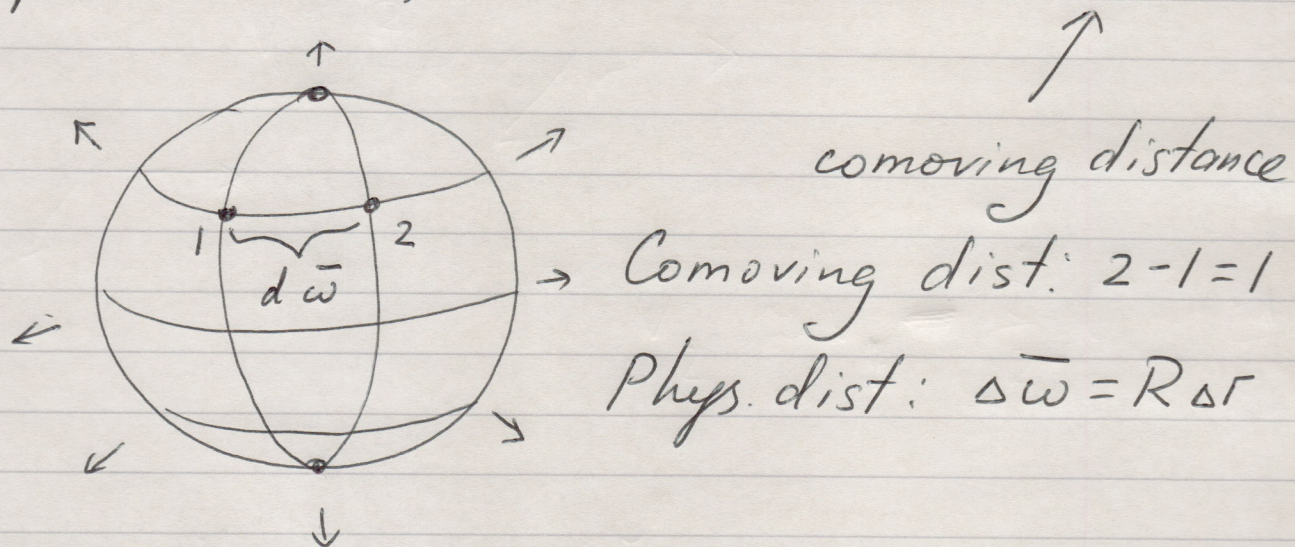 comoving distance
1 2
d ω̅
Comoving dist: 2-1=1
Phys. dist: Δω̅ = RΔr